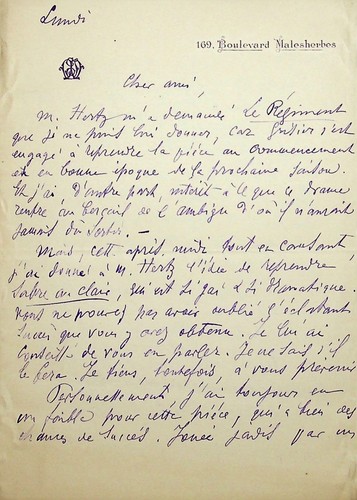 Lundi
169, Boulevard Malesherbes
Cher ami,
M. Hertz m'a demandé Le Régiment
que je ne puis lui donner, car s'est
engagé à reprendre la pièce au commencement
et en bonne époque de la prochaine saison.
Et j'ai, d'autre part, intérêt à ce que ce drame
rentre au bercail de l'Ambigu d'où il n'aurait
jamais dû sortir. —
Mais, cette après-midi, tout en causant,
j'ai donné à M. Hertz l'idée de reprendre
Sabre au clair, qui est si gai & si dramatique.
Vous ne pouvez pas avoir oublié l'éclatant
succès que vous y avez obtenu. Je lui ai
conseillé de vous en parler. Je ne sais s'il
le fera. Je tiens, toutefois, à vous prévenir
Personnellement, j'ai toujours eu
un faible pour cette pièce, qui a bien des
chances de succès. Jouée jadis par un